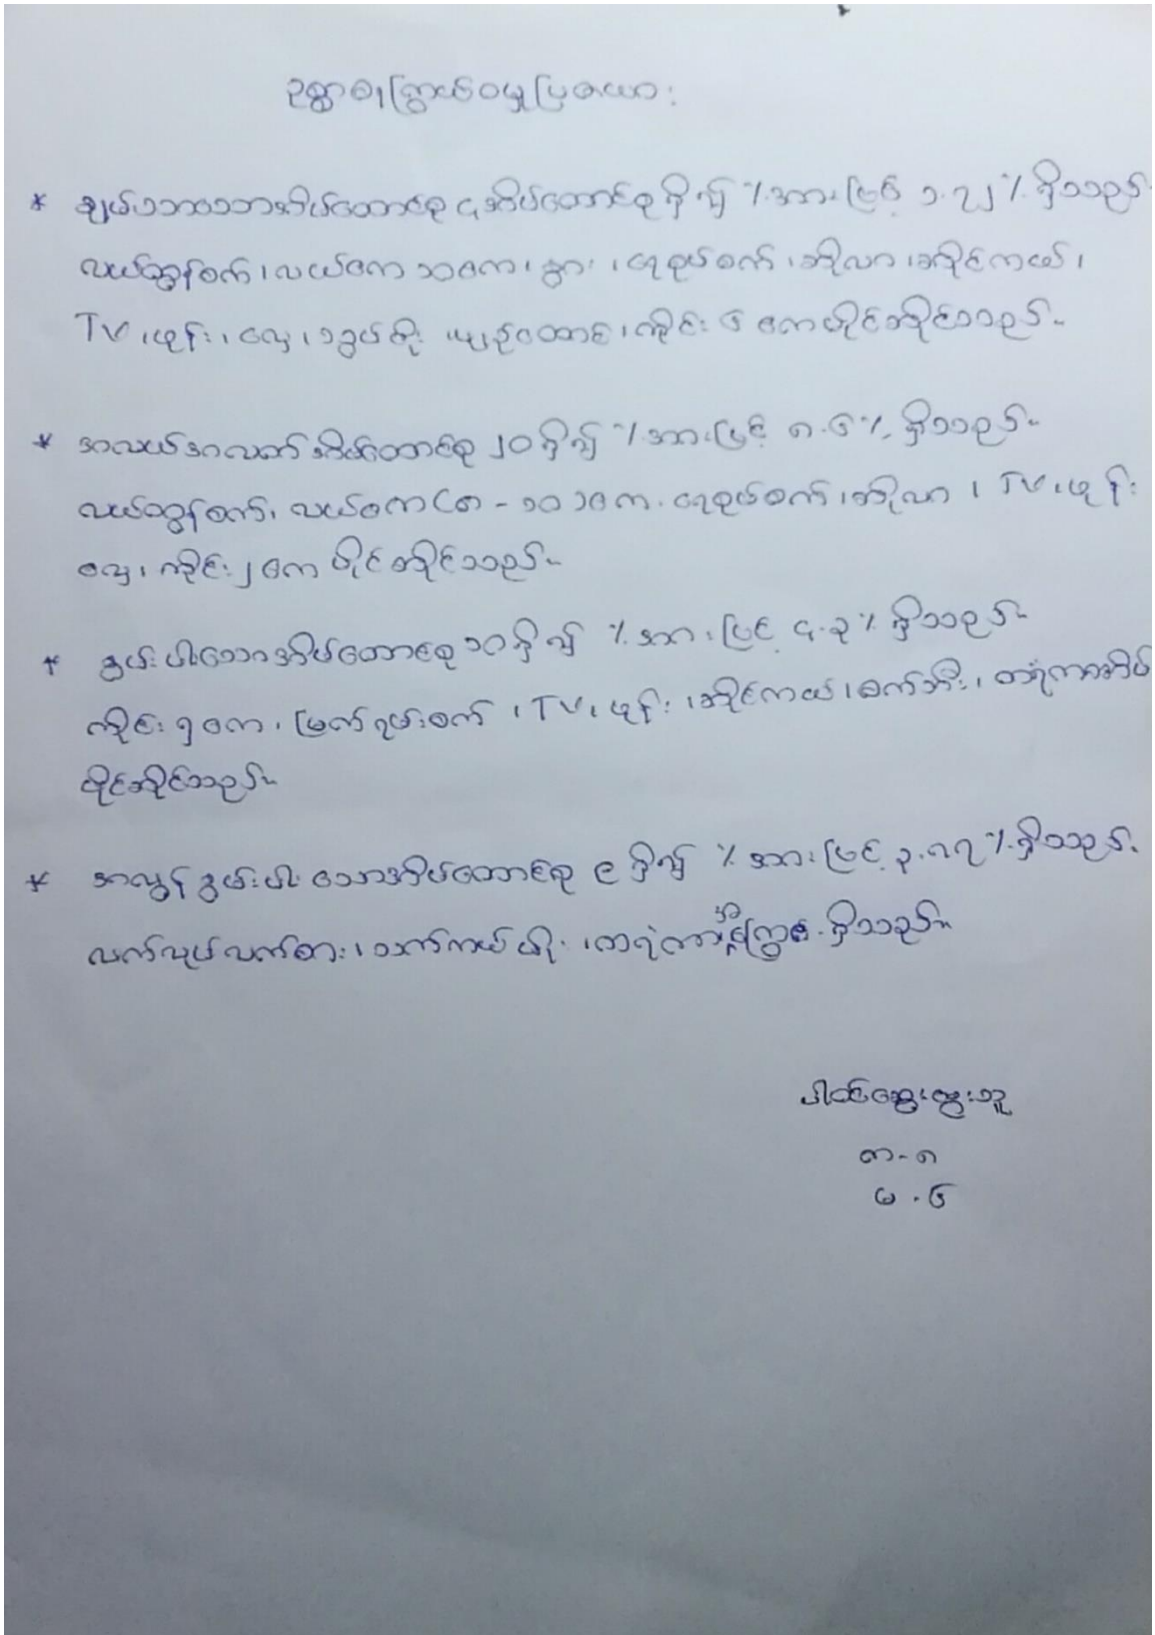 ဥစ္စာဓနကြွယ်ဝမှုပြဇယား
* ချမ်းသာသောအိမ်ထောင်စု ၄ အိမ်ထောင်စုရှိ၍ % အားဖြင့် ၁.၇၂ % ရှိသည်။
လယ်ထွန်စက်၊ လယ်ဧက ၁၀ဧက၊ နွား၊ ရေစုပ်စက်၊ ဆိုလာ၊ ဆိုင်ကယ်၊
TV ၊ ဖုန်း၊ လှေ၊ သွပ်မိုး ပျဉ်ထောင်၊ ကိုင်း ၆ ဧက ပိုင်ဆိုင်သည်။
* အလယ်အလတ် အိမ်ထောင်စု ၂၀ ရှိ၍ % အားဖြင့် ၈.၆ % ရှိသည်။
လယ်ထွန်စက်၊ လယ်ဧက (၈ - ၁၀) ဧက၊ ရေစုပ်စက်၊ ဆိုလာ ၊ TV ၊ ဖုန်း
လှေ၊ ကိုင်း ၂ ဧက ပိုင်ဆိုင်သည်။
* နွမ်းပါးသောအိမ်ထောင်စု ၁၀ ရှိ၍ % အားဖြင့် ၄.၃ % ရှိသည်။
ကိုင်း ၅ ဧက ၊ မြက်ရိတ်စက် ၊ TV ၊ ဖုန်း ၊ ဆိုင်ကယ်၊ စက်ဘီး၊ တရံကာအိမ်
ပိုင်ဆိုင်သည်။
* အလွန်နွမ်းပါးသောအိမ်ထောင်စု ၉ ရှိ၍ % အားဖြင့် ၃.၈၇ % ရှိသည်။
လက်လုပ်လက်စား၊ သက်ကယ်မိုး ၊ တရံကာ အိမ် ရှိသည်။
ပါဝင်ဆွေးနွေးသူ
ကျား - ၈
မ - ၆